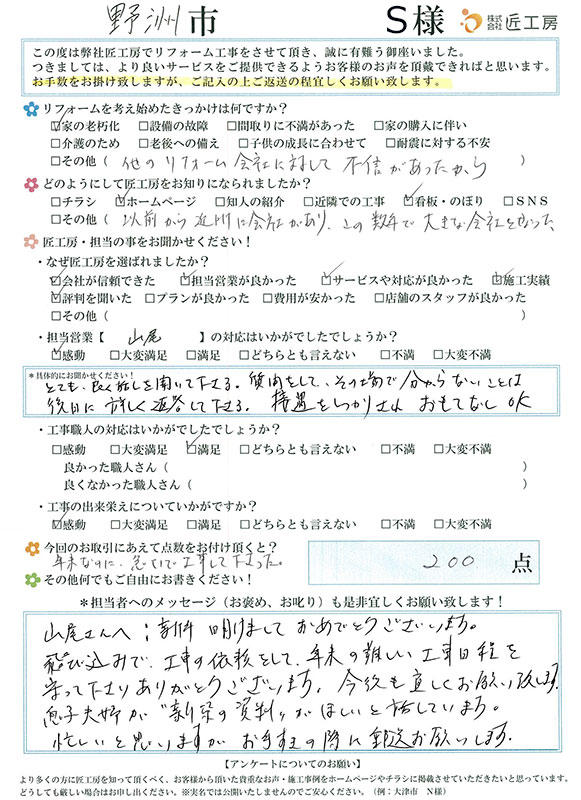 野洲市 S様 株式会社 匠工房
この度は弊社匠工房でリフォーム工事をさせて頂き、誠に有難う御座いました。
つきましては、より良いサービスをご提供できるようお客様のお声を頂戴できればと思います。
お手数をお掛け致しますが、ご記入の上ご返送の程宜しくお願い致します。
リフォームを考え始めたきっかけは何ですか?
☑家の老朽化 □設備の故障 □間取りに不満があった □家の購入に伴い
□介護のため □老後への備え □子供の成長に合わせて □耐震に対する不安
□その他( 他のリフォーム会社に対して不信があったから )
どのようにして匠工房をお知りになられましたか?
□チラシ ☑ホームページ □知人の紹介 □近隣での工事 ☑看板・のぼり □SNS
□その他( 以前から近所に会社があり、この数年で大きな会社となった
匠工房・担当の事をお聞かせください!
・なぜ匠工房を選ばれましたか?
☑会社が信頼できた ☑担当営業が良かった ☑サービスや対応が良かった ☑施工実績
☑評判を聞いた □プランが良かった □費用が安かった □店舗のスタッフが良かった
□その他( )
・担当営業【 山尾 】の対応はいかがでしたでしょうか?
☑感動 □大変満足 □満足 □どちらとも言えない □不満 □大変不満
*具体的にお聞かせください!
とても、良く話しを聞いて下さる。質問をして、その場で分からないことは
後日に詳しく返答して下さる。接遇をしっかりされ おもてなしOK
・工事職人の対応はいかがでしたでしょうか?
□感動 □大変満足 ☑満足 □どちらとも言えない □不満 □大変不満
良かった職人さん( )
良くなかった職人さん( )
・工事の出来栄えについていかがですか?
☑感動 □大変満足 □満足 □どちらとも言えない □不満 □大変不満
今回のお取引にあえて点数をお付け頂くと? 200 点
年末なのに、急いで工事して下さった。
その他何でもご自由にお書きください!
*担当者へのメッセージ(お褒め、お叱り)も是非宜しくお願い致します!
山尾さんへ;新年 明けましておめでとうございます。
飛び込みで、工事の依頼をして、年末の難しい工事日程を
守って下さりありがとうございます。今後も宜しくお願い致します。
息子夫婦が“新築の資料”がほしいと話しています。
忙しいと思いますがお手すきの時に郵送お願いします。
【アンケートについてのお願い】
より多くの方に匠工房を知って頂くべく、お客様から頂いた貴重なお声・施工事例をホームページやチラシに掲載させていただきたいと思っています。
どうしても厳しい場合はお申し出ください。※実名では公開いたしませんのでご安心ください。(例:大津市 N様)